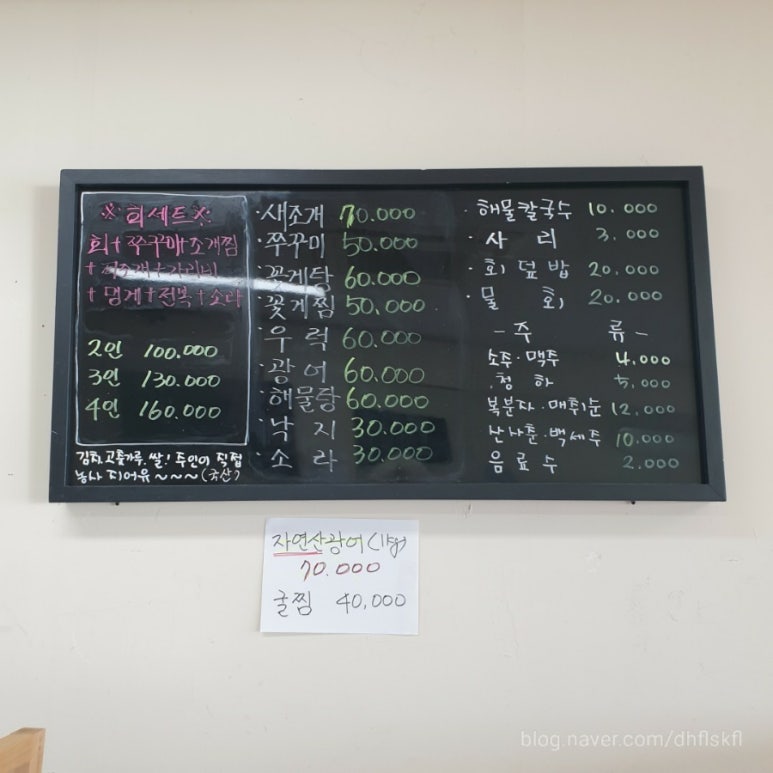 ※회세트※
회+쭈꾸미+조개찜
+키조개+가리비
+멍게+전복+소라
2인 100.000
3인 130.000
4인 160.000
김치.고춧가루.쌀! 주인이 직접
농사 지어유~~~(국산)
·새조개 70.000
·쭈꾸미 50.000
·꽃게탕 60.000
·꽃게찜 50.000
·우럭 60.000
·광어 60.000
·해물탕 60.000
·낙지 30.000
·소라 30.000
·해물칼국수 10.000
·사리 3.000
·회덮밥 20.000
·물회 20.000
-주류-
소주·맥주 4.000
청하 5.000
복분자·매취순 12.000
산사춘·백세주 10.000
음료수 2.000
자연산광어(1kg)
70.000
굴찜 40,000
blog.naver.com/dhflskfl